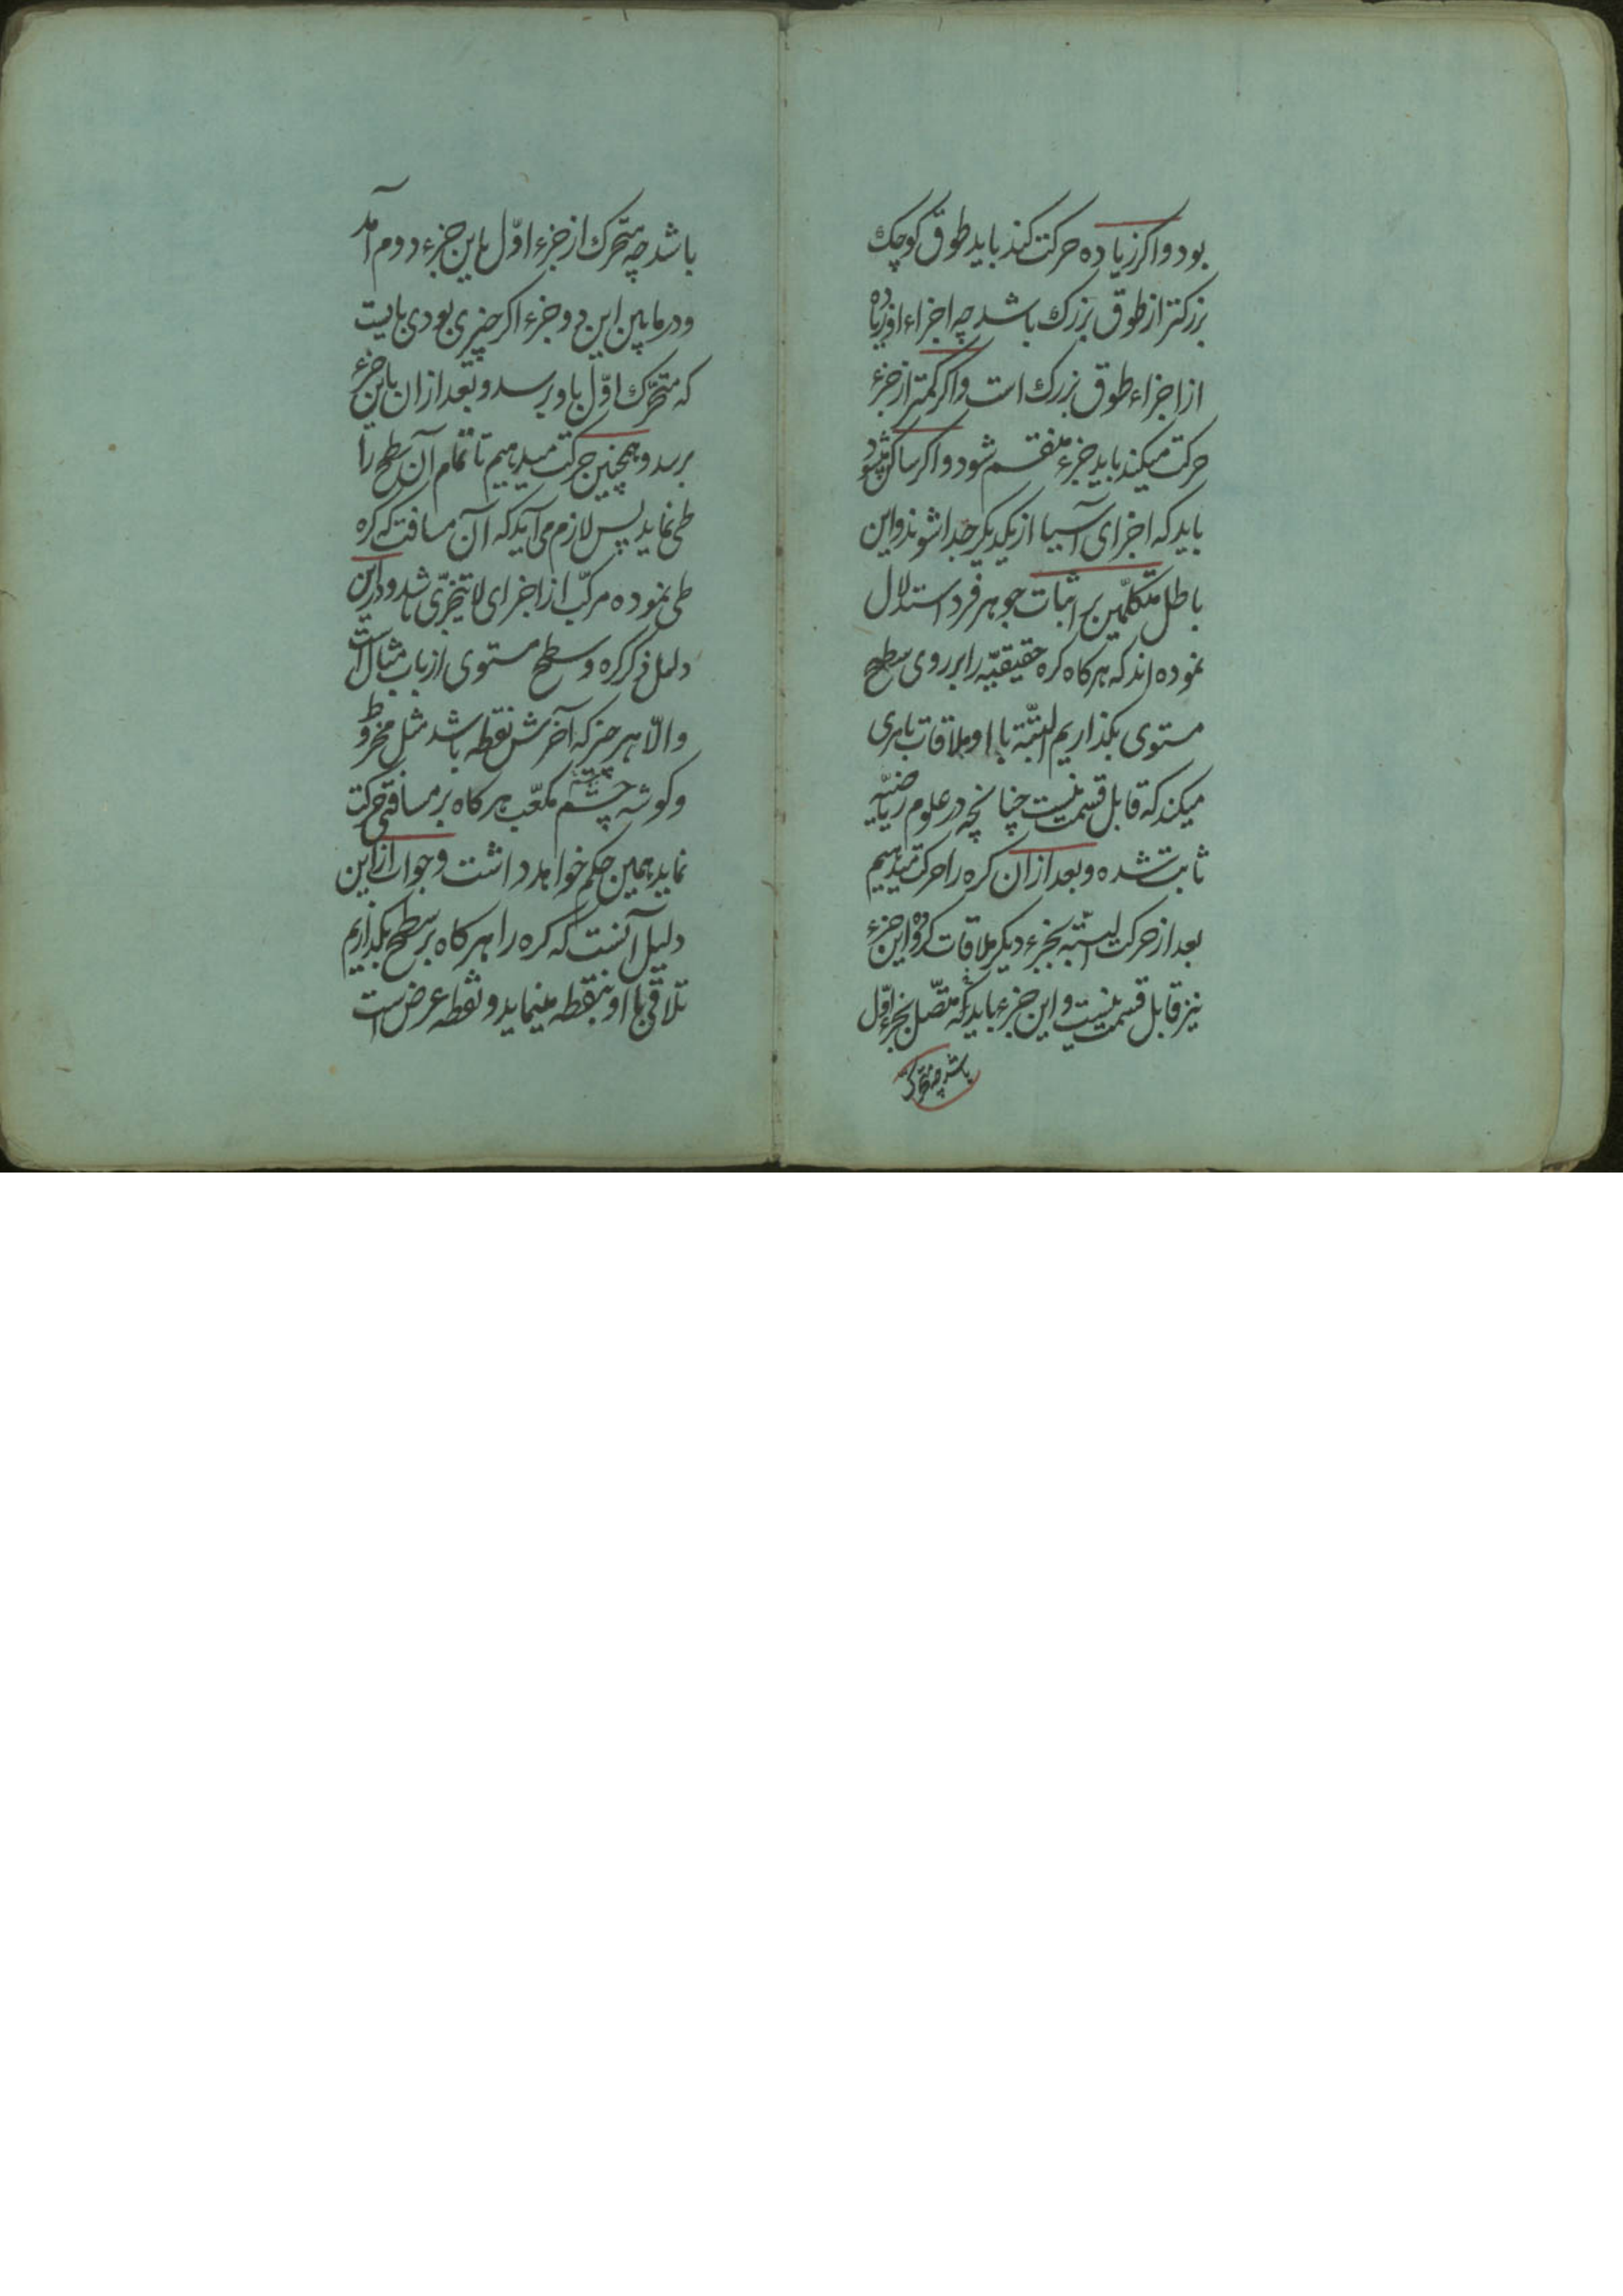 بود و اکر زیاده حرکت کند باید طوق کوچک
بزرکتر از طوق بزرک باشد چه اجزاء او زیاده
از اجزاء طوق بزرک است و اکر کمتر از جزء
حرکت میکند باید جزء منقسم شود و اکر ساکن میشود
باید که اجزای آسیا از یکدیکر جدا شوند و این
باطل متکلّمین بر اثبات جوهر فرد استدلال
نموده اند که هرکاه کره حقیقیّه را بر روی سطح
مستوی بکذاریم البتّه با او ملاقات بامری
میکند که قابل قسمت نیست چنانچه در علوم ریاضیّه
ثابت شده و بعد از ان کره را حرکت میدهیم
بعد از حرکت البتّه بجزء دیکر ملاقات کرده و این جزء
نیز قابل قسمت نیست و این جزء باید که متّصل بجزء اوّل
باشد چه متحرک
باشد چه متحرک از جزء اوّل باین جزء دوم آمد
و در مابین این دو جزء اکر چیزی بودی بایست
که متحرّک اوّل باو برسد و بعد از ان باین جزء
برسد و همچنین حرکت میدهیم تا تمام آن سطح را
طی نماید پس لازم می آید که آن مسافت که کره
طی نموده مرکّب از اجزای لا یتجزّی باشد و در این
دلیل ذکر کره و سطح مستوی از باب مثال است
و الّا هر چیز که آخرش نقطه باشد مثل مخروط
و کوشه چشم مکعّب هرکاه بر مسافتی حرکت
نماید همین حکم خواهد داشت و جواب از این
دلیل آنست که کره را هرکاه بر سطح بکذاریم
تلاقی با او بنقطه مینماید و نقطه عرض است